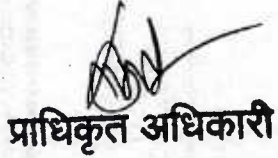 प्राधिकृत अधिकारी